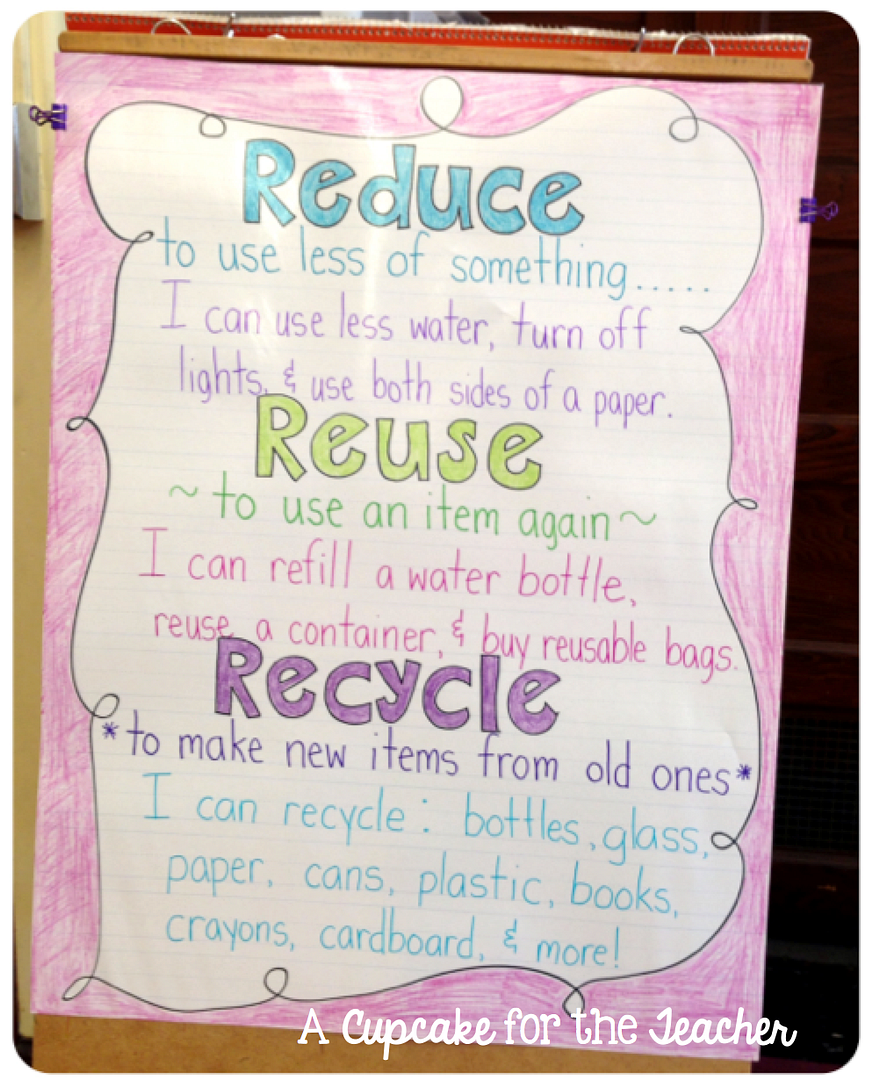 Reduce
to use less of something.....
I can use less water, turn off
lights, & use both sides of a paper.
Reuse
~to use an item again~
I can refill a water bottle,
reuse a container, & buy reusable bags.
Recycle
*to make new items from old ones*
I can recycle: bottles, glass,
paper, cans, plastic, books,
crayons, cardboard, & more!
A Cupcake for the Teacher